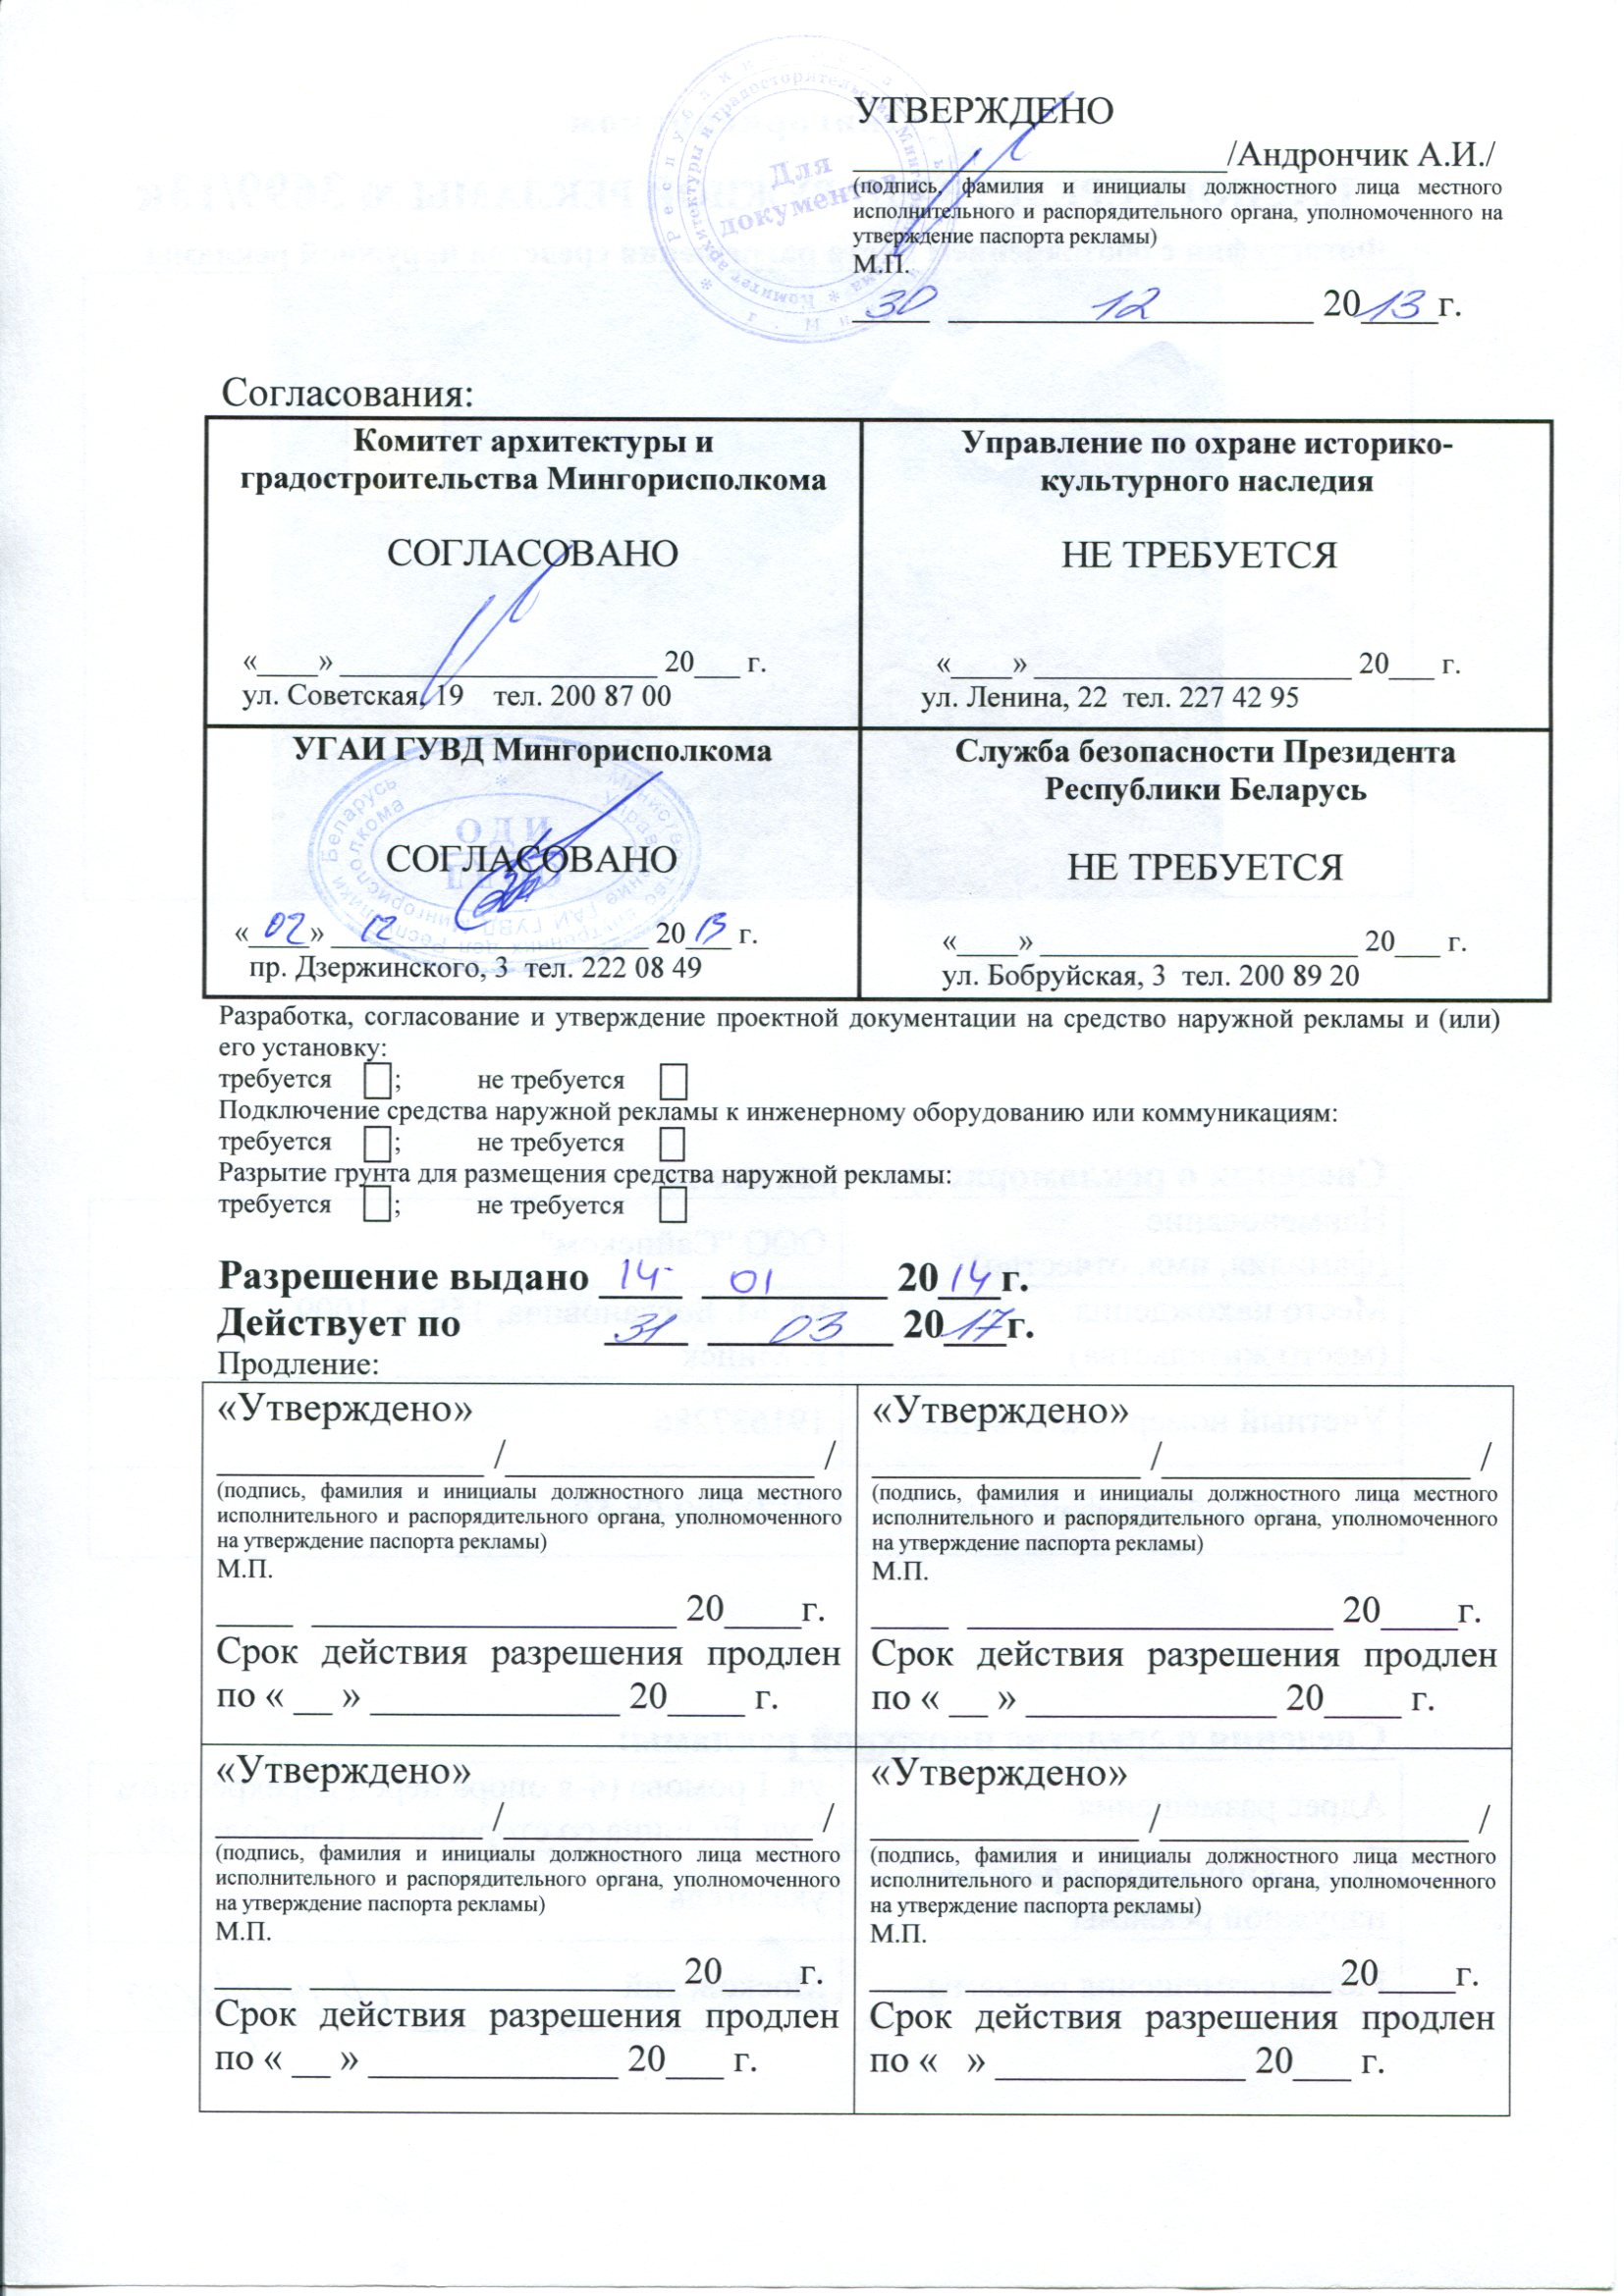 УТВЕРЖДЕНО
____________________/Андрончик А.И./
(подпись, фамилия и инициалы должностного лица местного
исполнительного и распорядительного органа, уполномоченного на
утверждение паспорта рекламы)
М.П.
30 12 2013г.
Для
документов
Согласования:
Комитет архитектуры и
градостроительства Мингорисполкома
СОГЛАСОВАНО
«____» _____________________ 20___ г.
ул. Советская, 19 тел. 200 87 00
Управление по охране историко-
культурного наследия
НЕ ТРЕБУЕТСЯ
«____» _____________________ 20___ г.
ул. Ленина, 22 тел. 227 42 95
УГАИ ГУВД Мингорисполкома
СОГЛАСОВАНО
«02» 12 2013 г.
пр. Дзержинского, 3 тел. 222 08 49
Служба безопасности Президента
Республики Беларусь
НЕ ТРЕБУЕТСЯ
«____» _____________________ 20___ г.
ул. Бобруйская, 3 тел. 200 89 20
Разработка, согласование и утверждение проектной документации на средство наружной рекламы и (или)
его установку:
требуется ☐; не требуется ☐
Подключение средства наружной рекламы к инженерному оборудованию или коммуникациям:
требуется ☐; не требуется ☐
Разрытие грунта для размещения средства наружной рекламы:
требуется ☐; не требуется ☐
Разрешение выдано 14 01 2014г.
Действует по 31 03 2017г.
Продление:
«Утверждено»
______________ /________________ /
(подпись, фамилия и инициалы должностного лица местного
исполнительного и распорядительного органа, уполномоченного
на утверждение паспорта рекламы)
М.П.
____ ___________________ 20____г.
Срок действия разрешения продлен
по « __ » _____________ 20____ г.
«Утверждено»
______________ /________________ /
(подпись, фамилия и инициалы должностного лица местного
исполнительного и распорядительного органа, уполномоченного
на утверждение паспорта рекламы)
М.П.
____ ___________________ 20____г.
Срок действия разрешения продлен
по « __ » _____________ 20____ г.
«Утверждено»
_______________/________________ /
(подпись, фамилия и инициалы должностного лица местного
исполнительного и распорядительного органа, уполномоченного
на утверждение паспорта рекламы)
М.П.
____ ___________________ 20____г.
Срок действия разрешения продлен
по « __ » _____________ 20___ г.
«Утверждено»
______________ /________________ /
(подпись, фамилия и инициалы должностного лица местного
исполнительного и распорядительного органа, уполномоченного
на утверждение паспорта рекламы)
М.П.
____ ___________________ 20____г.
Срок действия разрешения продлен
по « » _____________ 20___ г.